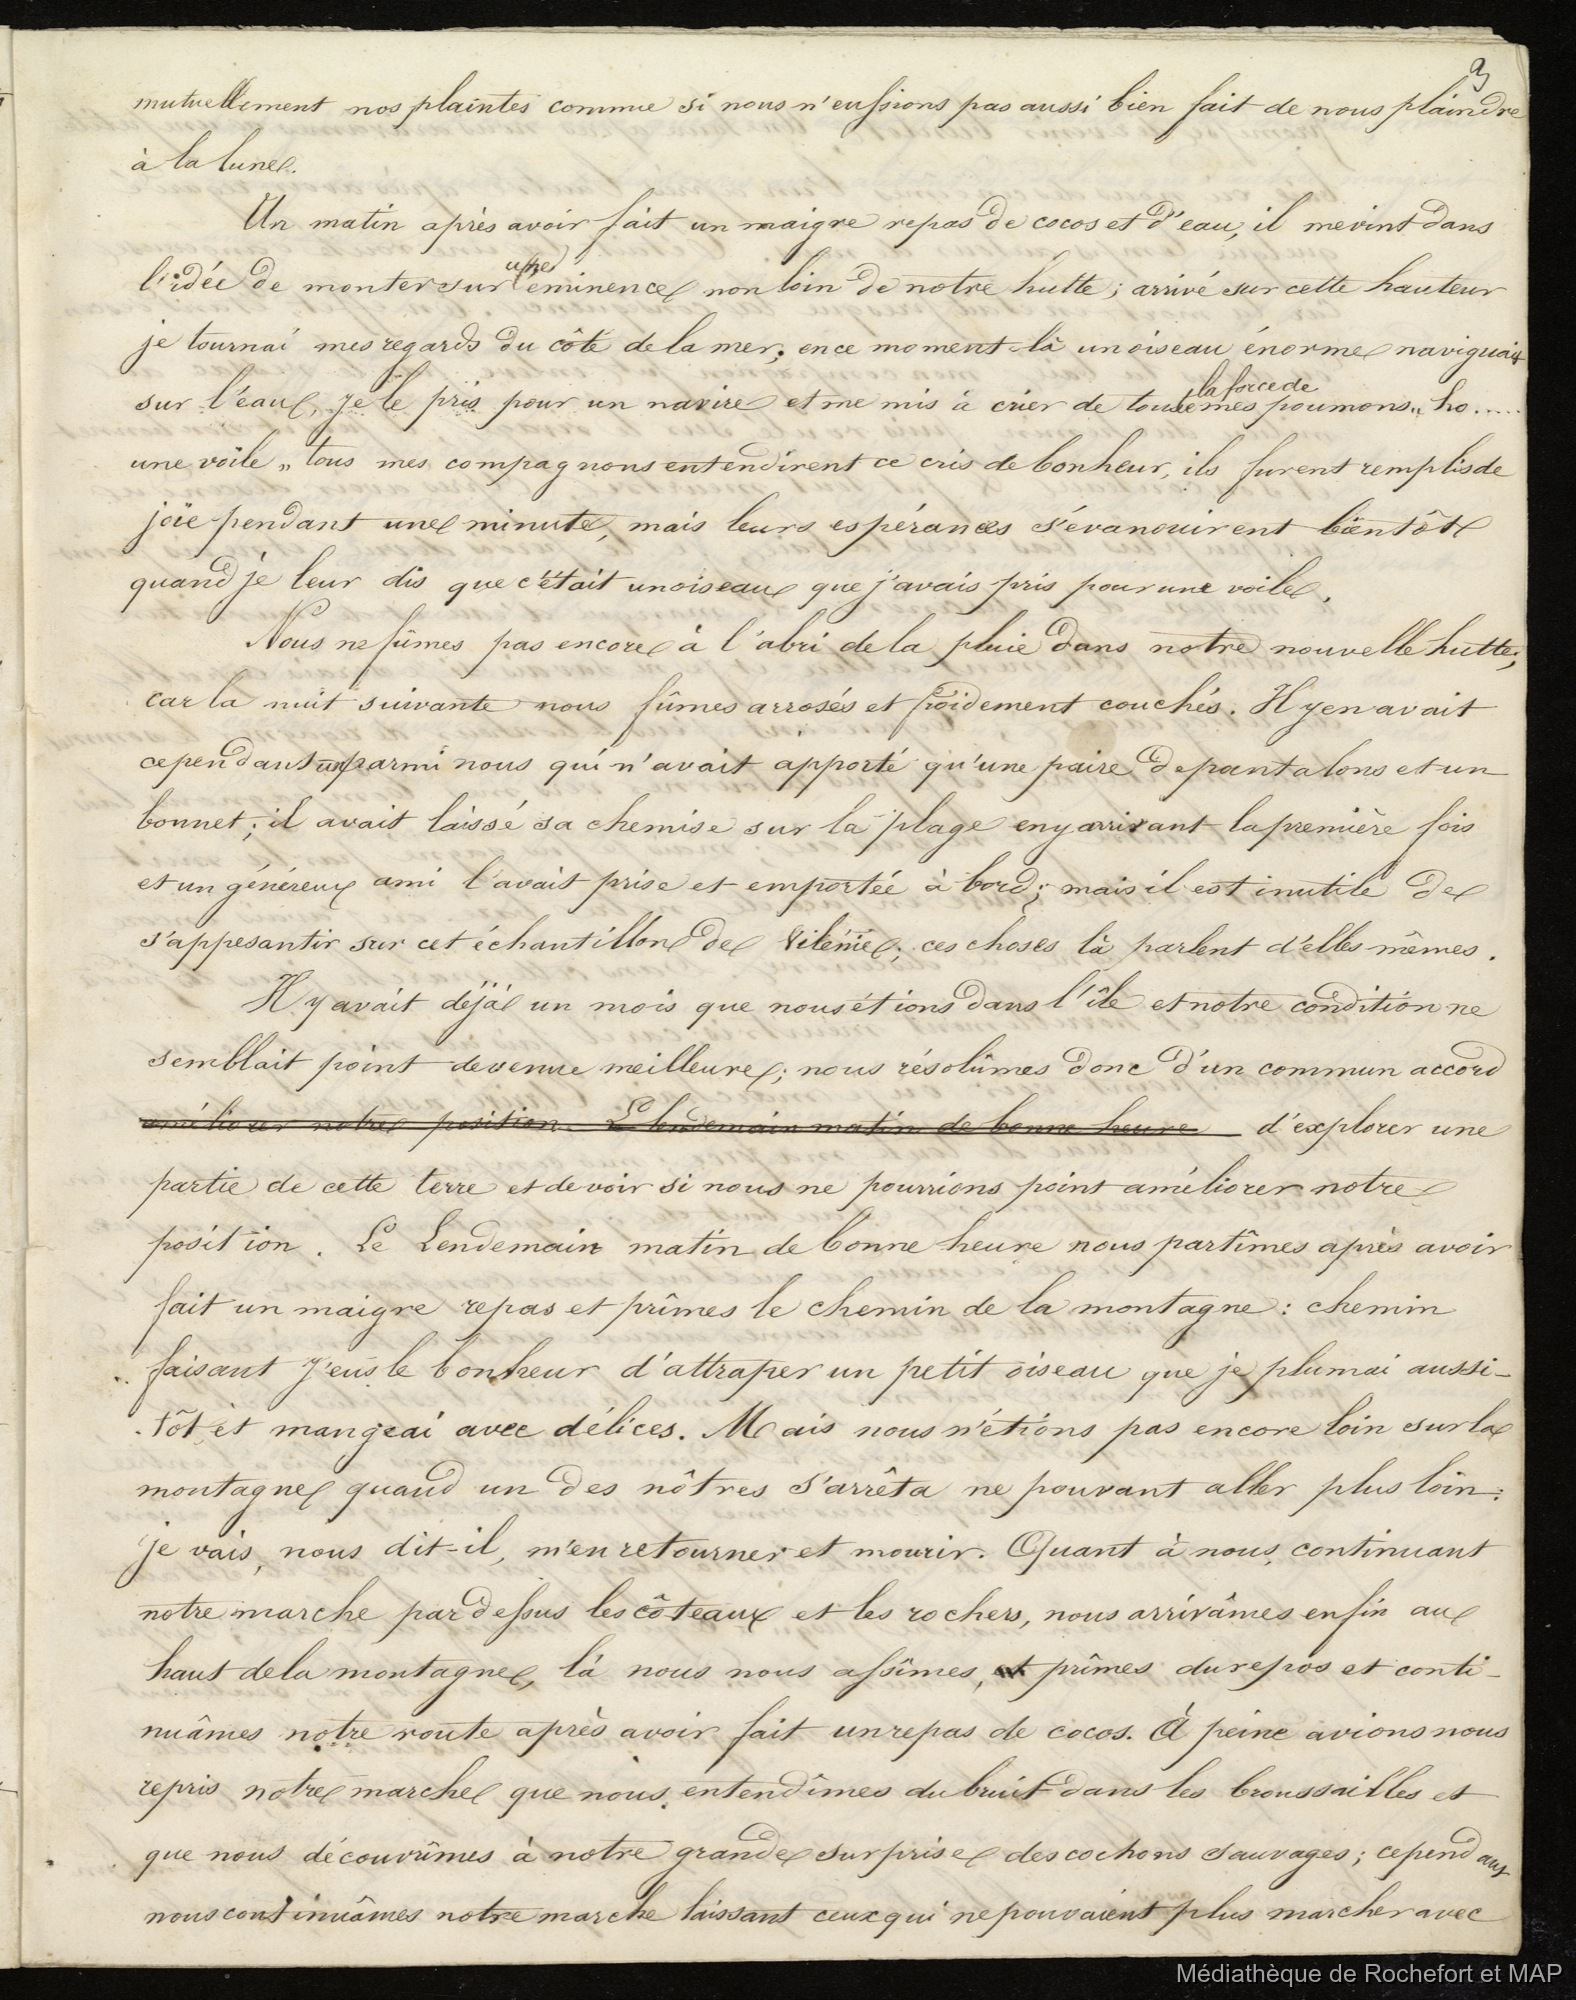 3
mutuellement nos plaintes comme si nous n'eussions pas aussi bien fait de nous plaindre
à la lune.
Un matin après avoir fait un maigre repas de cocos et d'eau, il me vint dans
l'idée de monter sur une éminence non loin de notre hutte; arrivé sur cette hauteur
je tournai mes regards du côté de la mer; en ce moment-là un oiseau énorme naviguait
sur l'eau, je le pris pour un navire et me mis à crier de toute la force de mes poumons „ ho.....
une voile „ tous mes compagnons entendirent ce cris de bonheur, ils furent remplis de
joie pendant une minute, mais leurs espérances s'évanouirent bientôt
quand je leur dis que c'était un oiseau que j'avais pris pour une voile.
Nous ne fûmes pas encore à l'abri de la pluie dans notre nouvelle hutte;
car la nuit suivante nous fûmes arrosés et froidement couchés. Il y en avait
cependant un parmi nous qui n'avait apporté qu'une paire de pantalons et un
bonnet; il avait laissé sa chemise sur la plage en y arrivant la première fois
et un généreux ami l'avait prise et emportée à bord; mais il est inutile de
s'appesantir sur cet échantillon de vilénie; ces choses là parlent d'elles mêmes.
Il y avait déjà un mois que nous étions dans l'île et notre condition ne
semblait point devenue meilleure; nous résolûmes donc d'un commun accord
améliorer notre position. Le lendemain matin de bonne heure d'explorer une
partie de cette terre et de voir si nous ne pourrions point améliorer notre
position. Le Lendemain matin de bonne heure nous partîmes après avoir
fait un maigre repas et prîmes le chemin de la montagne: chemin
faisant j'eus le bonheur d'attraper un petit oiseau que je plumai aussi-
tôt et mangeai avec délices. Mais nous n'étions pas encore loin sur la
montagne quand un des nôtres s'arrêta ne pouvant aller plus loin:
je vais, nous dit-il, m'en retourner et mourir. Quant à nous, continuant
notre marche par dessus les côteaux et les rochers, nous arrivâmes enfin au
haut de la montagne, là nous nous assîmes, et prîmes du repos et conti-
nuâmes notre route après avoir fait un repas de cocos. À peine avions nous
repris notre marche que nous entendîmes du bruit dans les broussailles et
que nous découvrîmes à notre grande surprise des cochons sauvages; cependant
nous continuâmes notre marche laissant ceux qui ne pouvaient plus marcher avec
Médiathèque de Rochefort et MAP